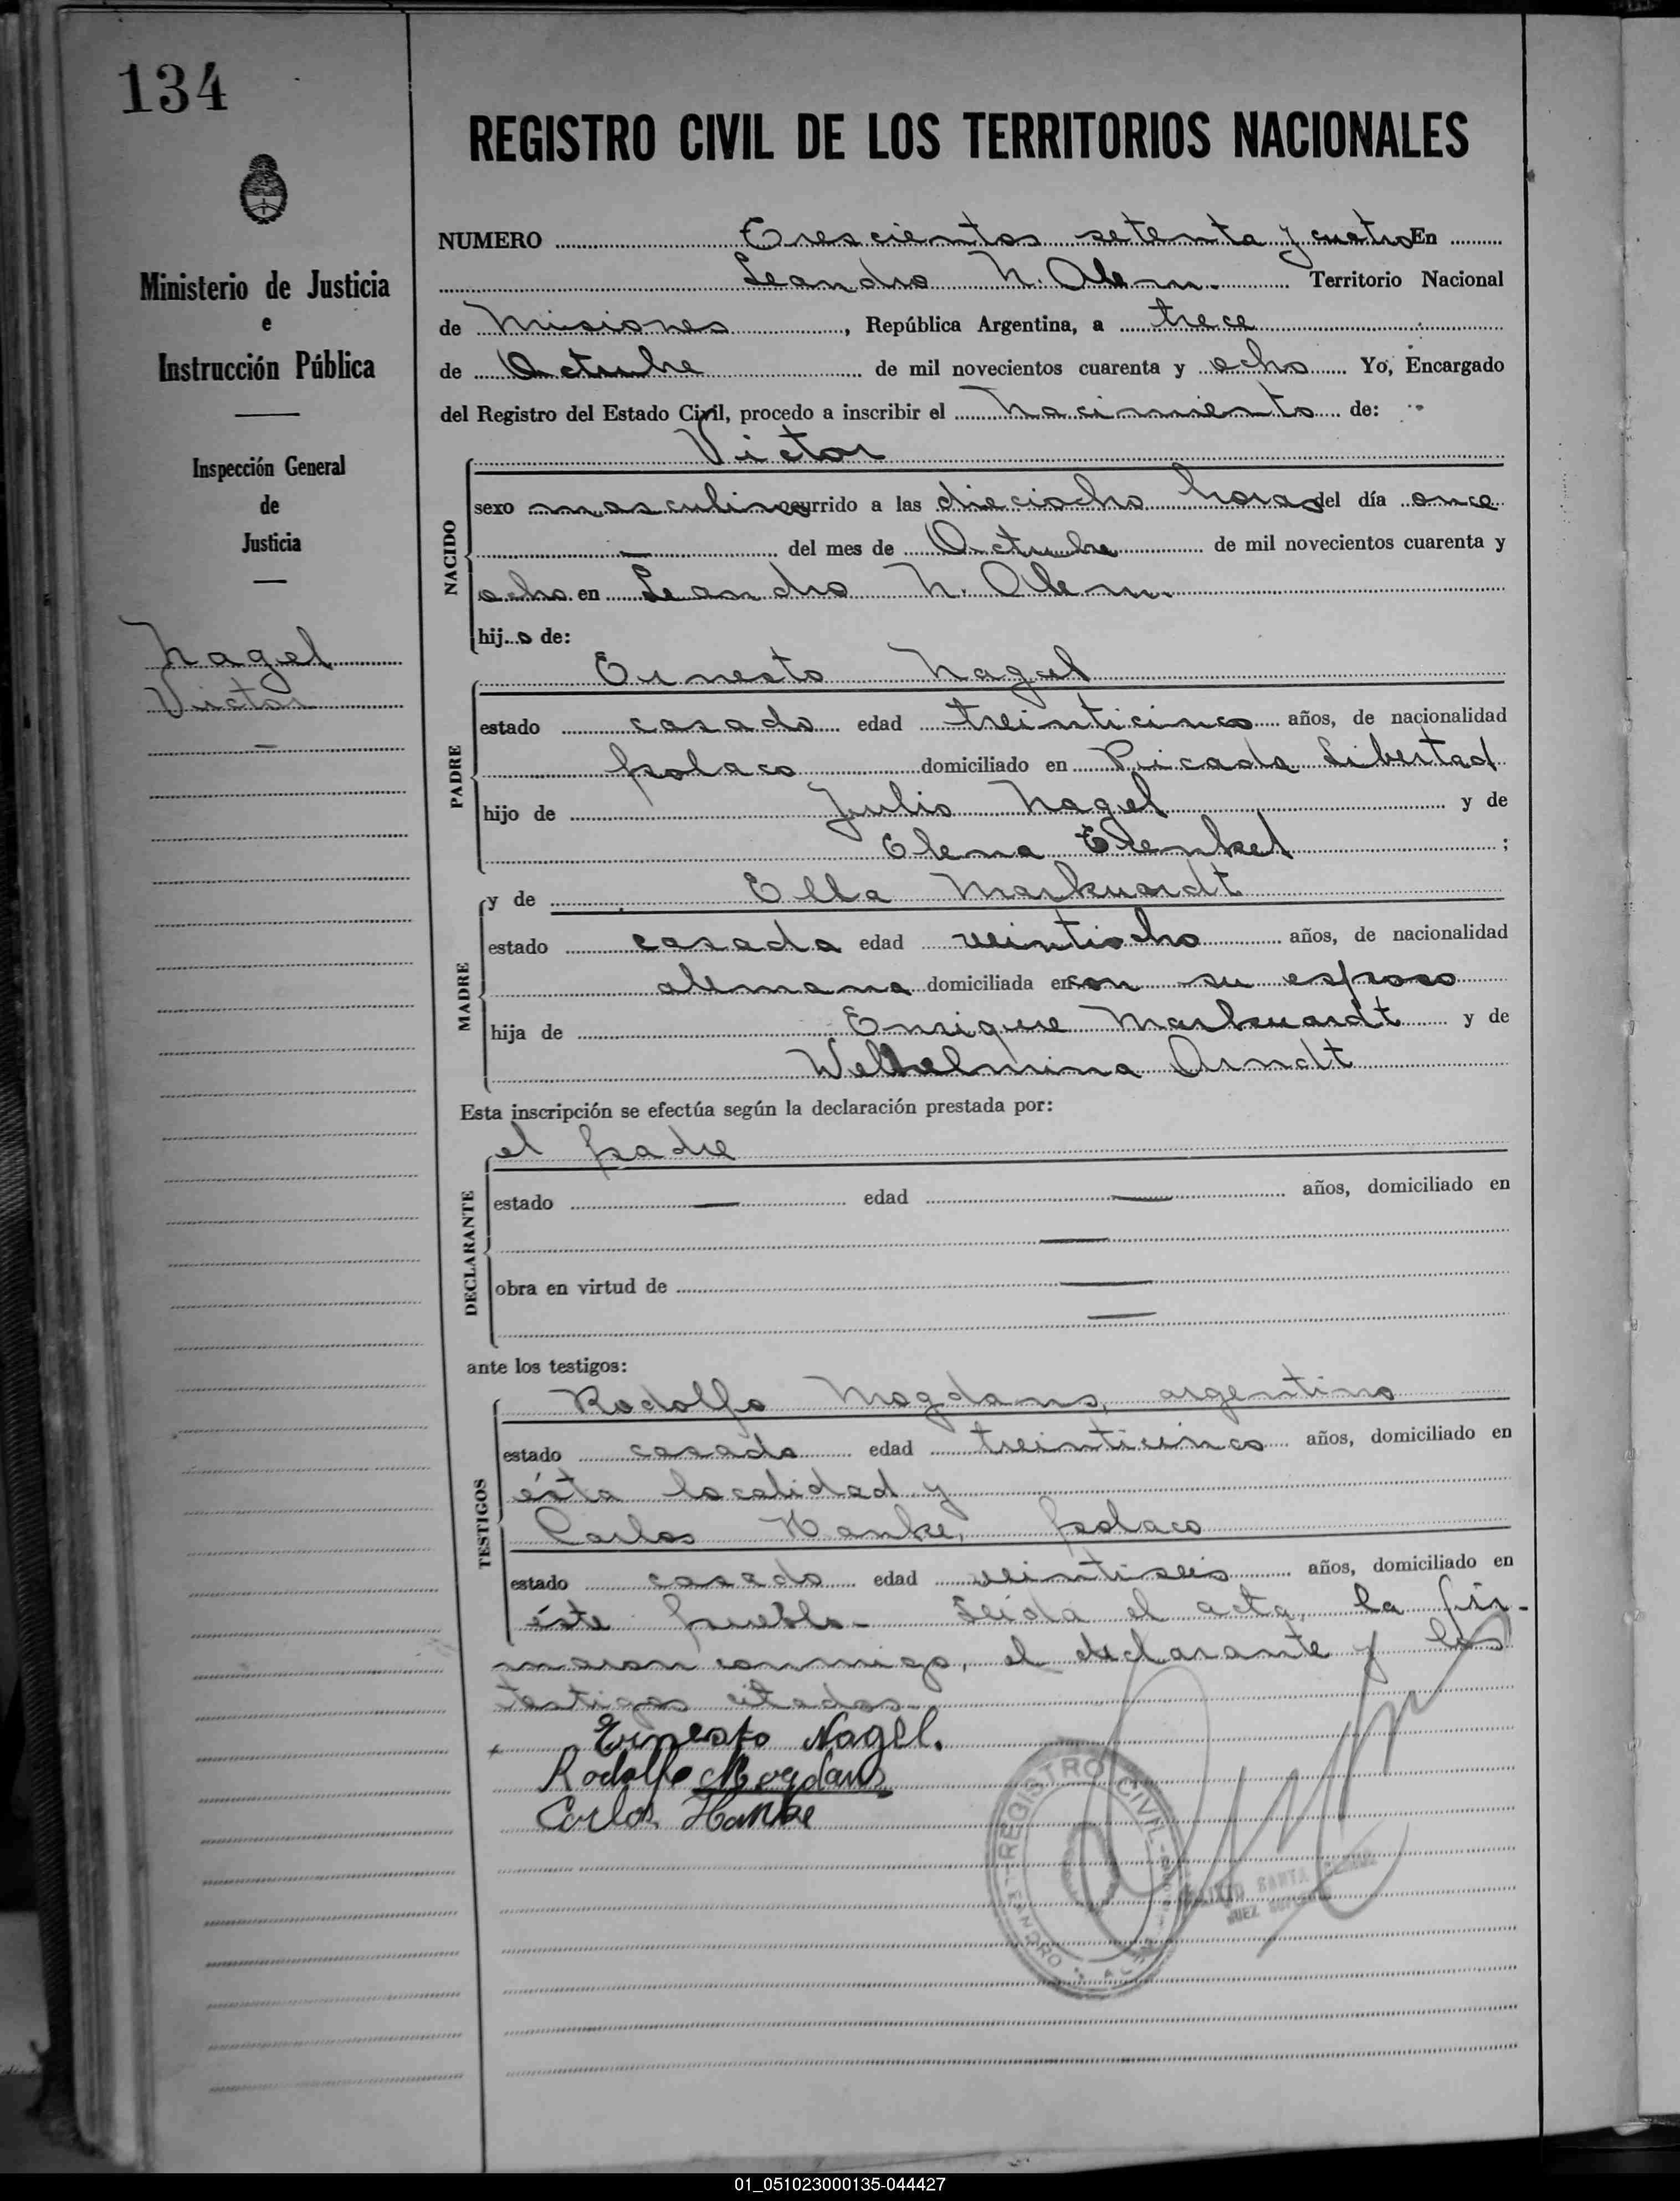 134
REGISTRO CIVIL DE LOS TERRITORIOS NACIONALES
Ministerio de Justicia
e
Instrucción Pública
Inspección General
de
Justicia
Nagel
Victor
NUMERO Trescientos setenta y cuatro En
Leandro N. Alem. Territorio Nacional
de Misiones, República Argentina, a trece
de Octubre de mil novecientos cuarenta y ocho Yo, Encargado
del Registro del Estado Civil, procedo a inscribir el nacimiento de:
NACIDO
Victor
sexo masculino ocurrido a las dieciocho horas del día once
— del mes de Octubre de mil novecientos cuarenta y
ocho en Leandro N. Alem.
hijo de:
PADRE
Ernesto Nagel
estado casado edad treinticinco años, de nacionalidad
polaco domiciliado en Picada Libertad
hijo de Julio Nagel y de
Elena ;
MADRE
y de Ella Markuardt
estado casada edad veintiocho años, de nacionalidad
alemana domiciliada en con su esposo
hija de Enrique Markuardt y de
Arndt
Esta inscripción se efectúa según la declaración prestada por:
DECLARANTE
el padre
estado — edad — años, domiciliado en
—
obra en virtud de —
—
ante los testigos:
TESTIGOS
Rodolfo Mogdans, argentino
estado casado edad treinticinco años, domiciliado en
ésta localidad y
Carlos Hanke, polaco
estado casado edad veintiseis años, domiciliado en
éste pueblo.- Leida el acta, la fir-
maron conmigo, el declarante y los
testigos citados.-
Ernesto Nagel.
Rodolfo Mogdans
Carlos Hanke
REGISTRO CIVIL
SANTA
JUEZ SUPLENTE
01_051023000135-044427